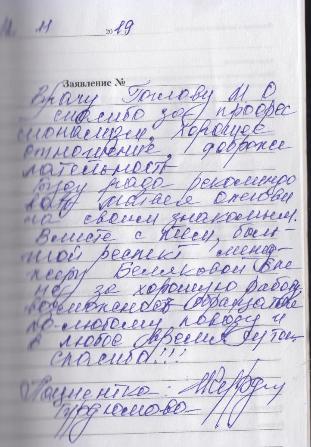 11 2019
Заявление №
Врачу Гоглову М О
спасибо за профес
сионализм, хорошее
отношение, доброже
лательность
Буду рада рекомендо
вать
своим знакомым.
Вместе с тем, боль-
шой респект менед-
жеру Беляковой
за хорошую работу,
возможность
по любому поводу и
в любое время суток
спасибо!!!
Пациентка: